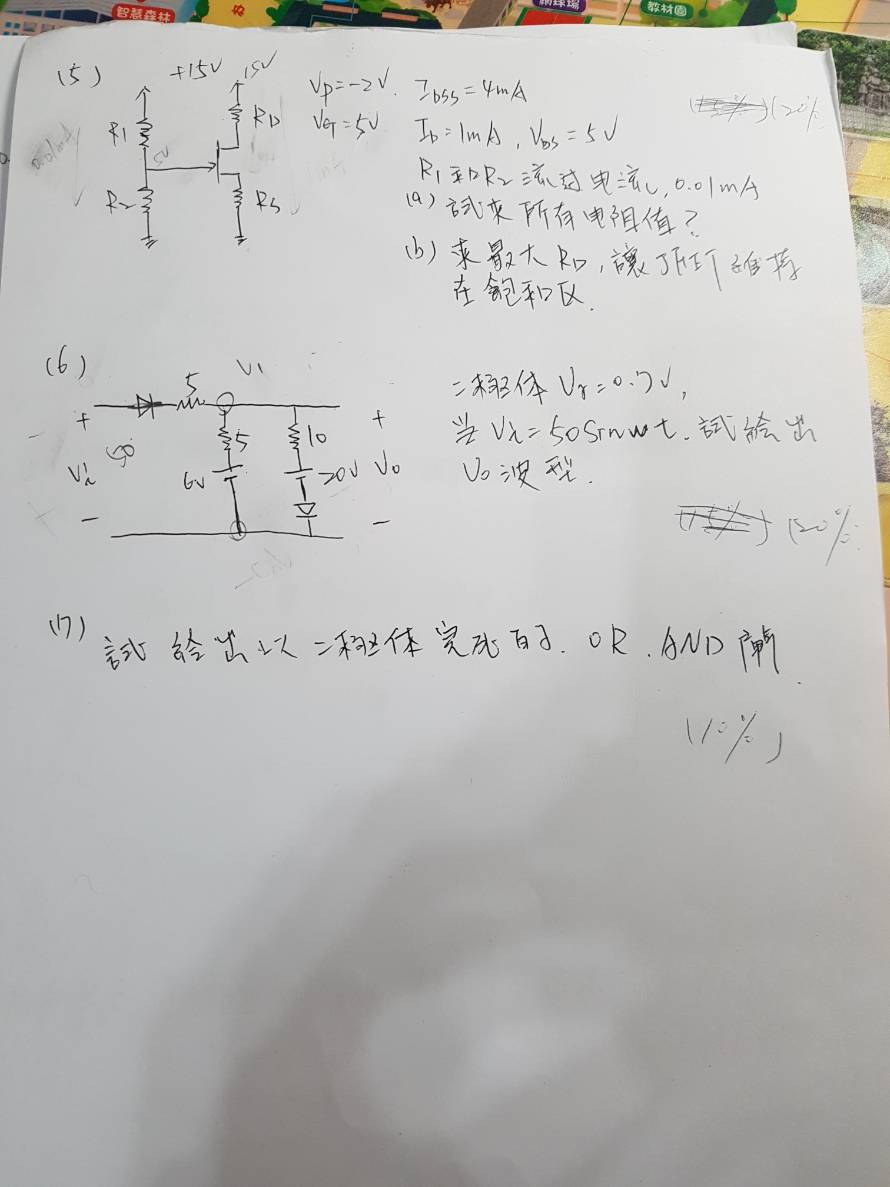 智慧森林
網球場
教材園
(5)
+15V
15V
R1
RD
5V
R2
RS
0.01mA
VP=-2V. IDSS=4mA
VG=5V ID=1mA, VDS=5V
R1和R2流过电流, 0.01mA
(a) 試求所有电阻值?
(b) 求最大RD, 讓JFET維持
在飽和区.
(20%
(6)
V1
5
+
Vi
50
-
5
6V
10
20V
+
Vo
-
二極体Vγ=0.7V,
当Vi=50Sinwt. 試絵出
Vo波型.
(20%
(7)
試絵出以二極体完成的. OR. AND 閘.
(10%)